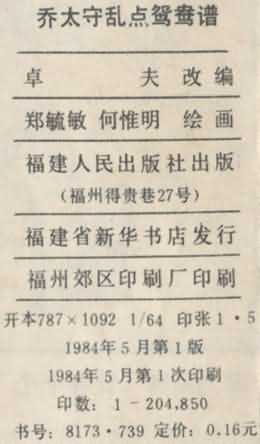 乔太守乱点鸳鸯谱
卓 夫 改 编
郑毓敏 何惟明 绘 画
福建人民出版社出版
(福州得贵巷27号)
福建省新华书店发行
福州郊区印刷厂印刷
开本787×1092 1/64 印张1·5
1984年5月第1版
1984年5月第1次印刷
印数: 1-204,850
书号: 8173·739 定价: 0.16元